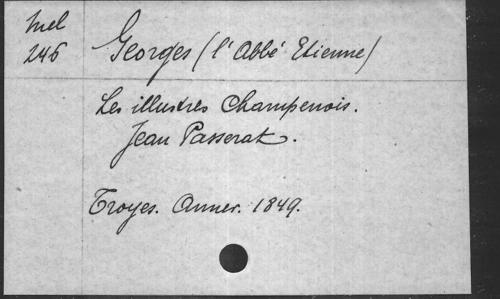 Mel
246
Georges (l'Abbé Etienne)
Les illustres Champenois.
Jean Passerat.
Troyes. Anner. 1849.